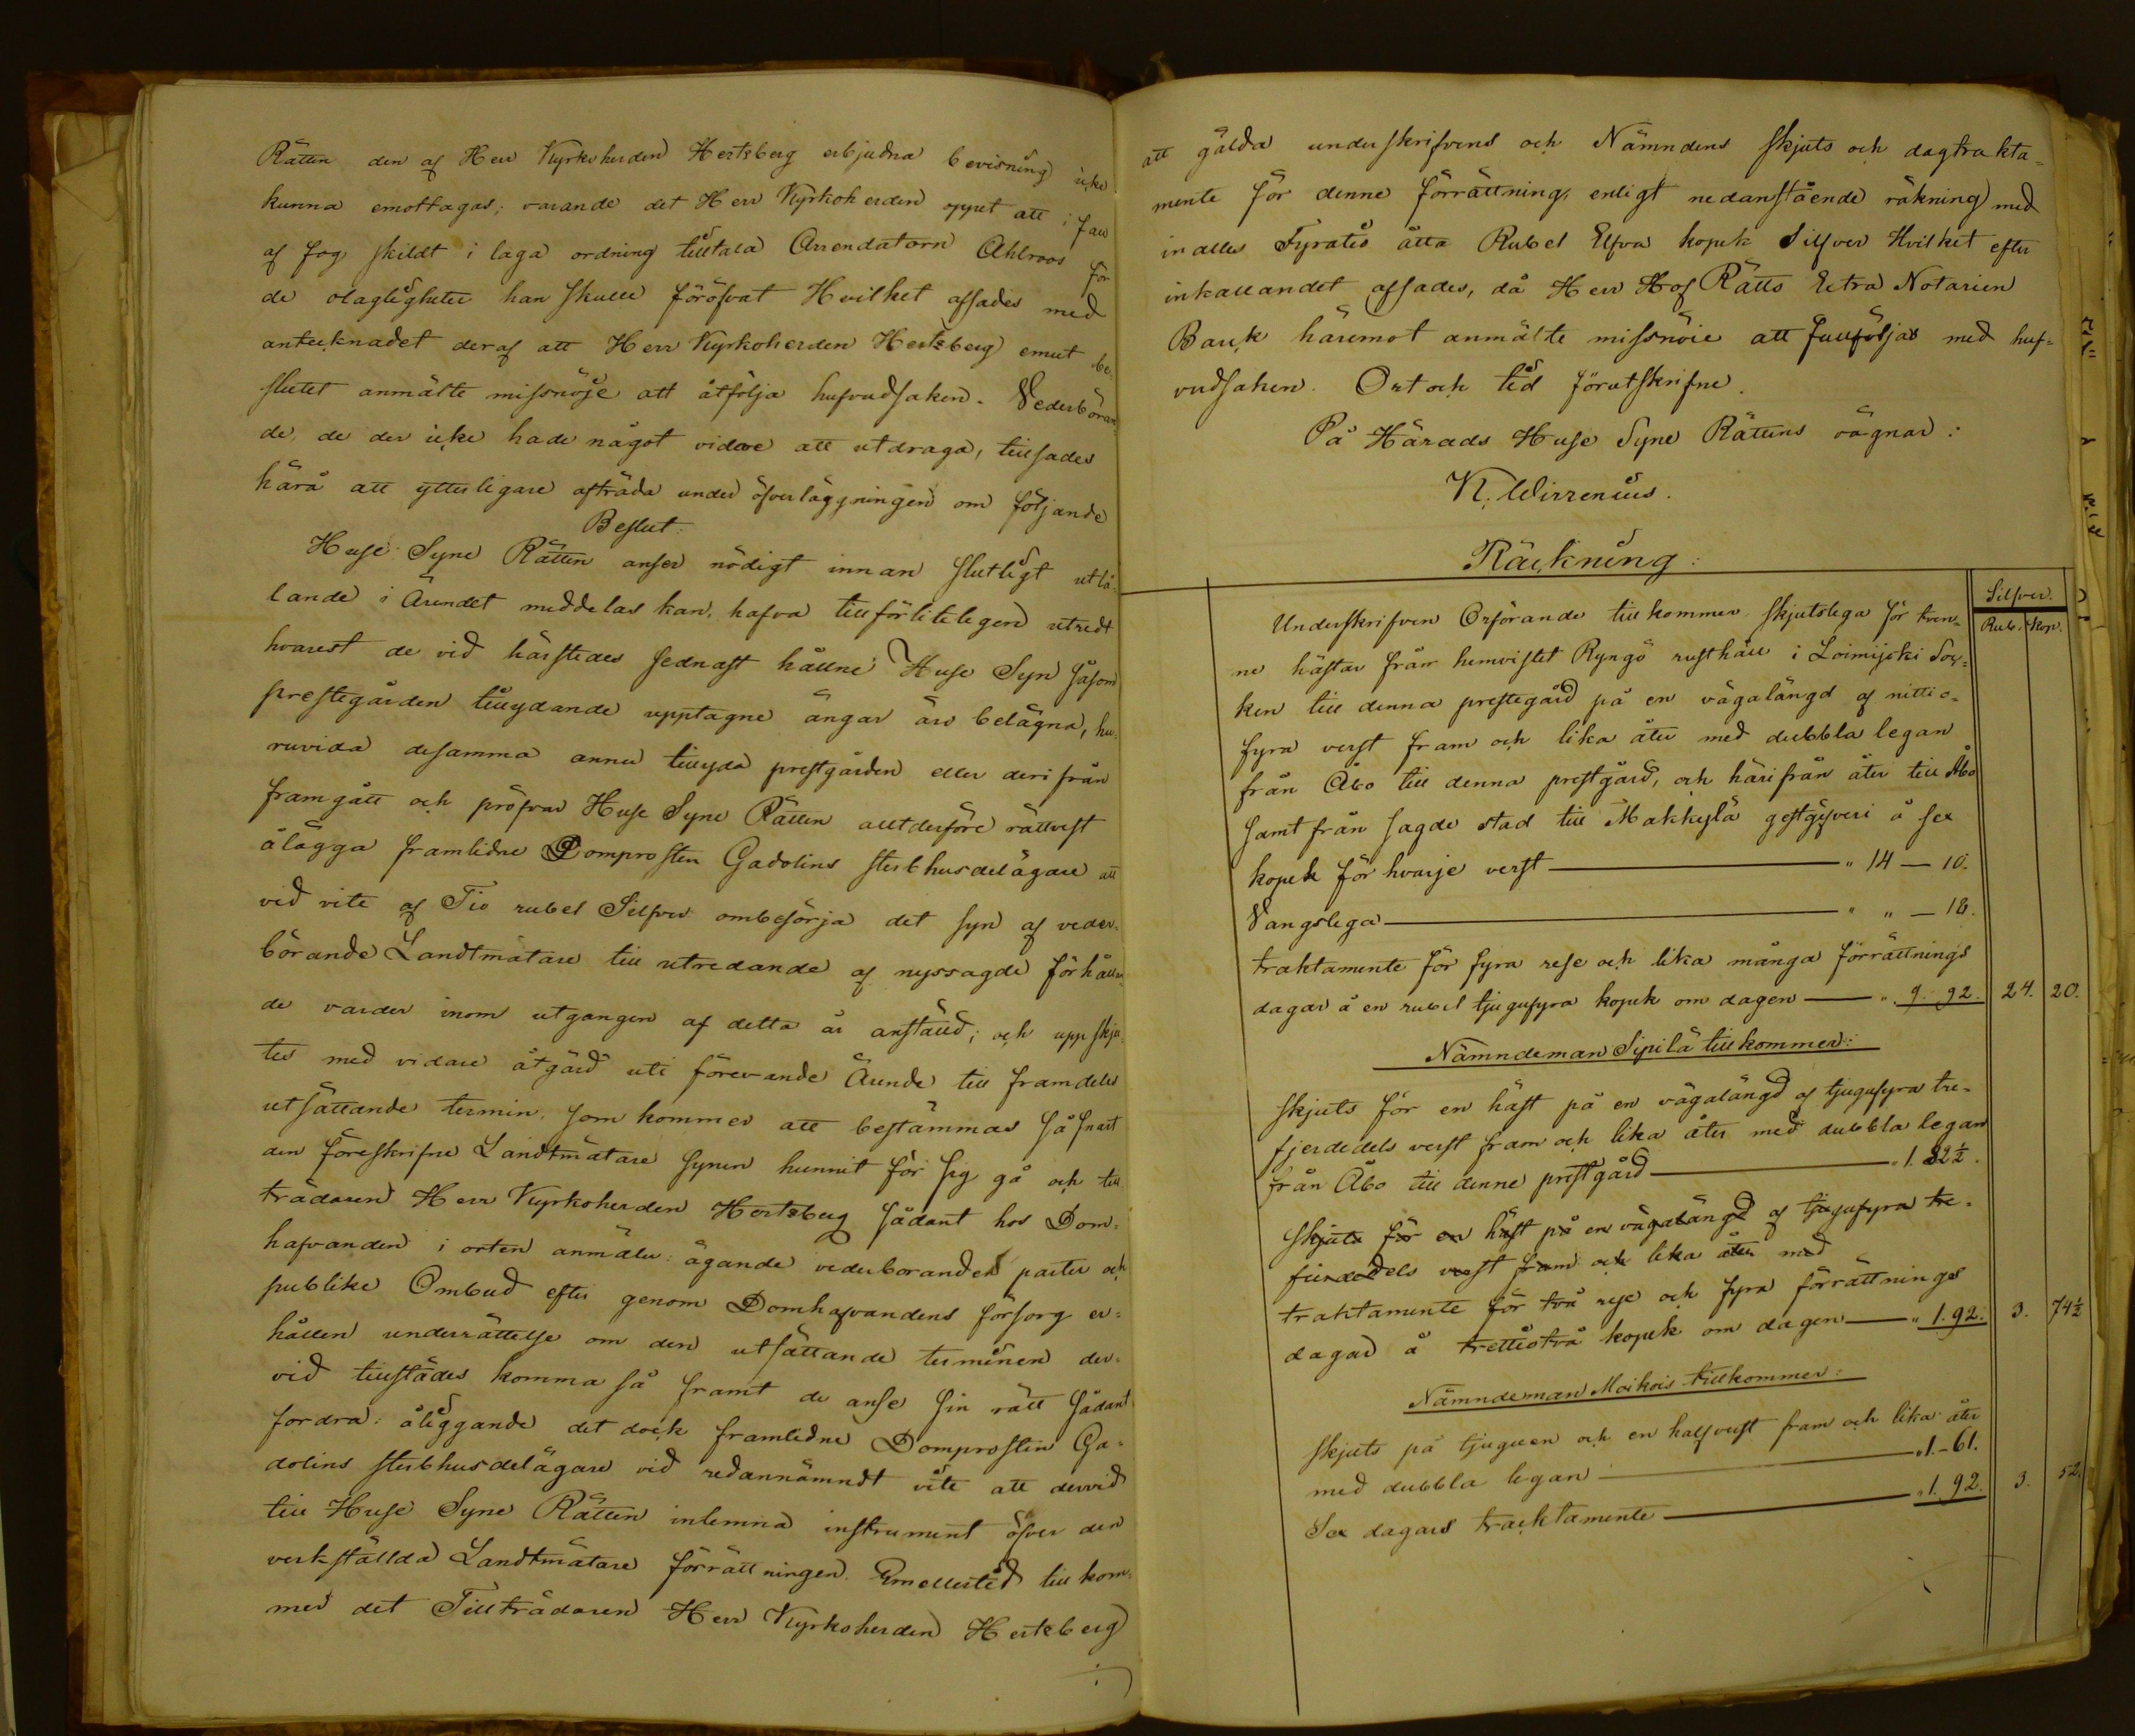 Rätten den af Herr Kyrkoherden Hertzberg erbjudna bevisning icke
kunna emottagas; varande det Herr Kyrkoherden öppet att i fall
af fog skildt i laga ordning tilltala Arrendatorn Ahlroos för
de olagligheter han skulle föröfvat Hvilket afsades med
antecknadet deraf att Herr Kyrkoherden Hertzberg emot be-
slutet anmälte missnöje att åtfölja hufvudsaken. Vederböran-
de, de der icke hade något vidare att utdraga, tillsades
härå att ytterligare afträda under öfverläggningen om följande
Beslut:
Huse Syne Rätten anser nödigt innan slutligt utlå-
tande i Ärendet meddelas kan, hafva tillförlitligen utredt
hvarest de vid härstedes sednast hållne Huse Syn såsom
prestegården tillydande upptagne ängar äro belägna, hu-
ruvida desamma annu tillyda prestgården eller derifrån
framgått och pröfvar Huse Syne Rätten alltderföre rättvist
ålägga framlidne Domprosten Gadolins sterbhusdelägare att
vid vite af Tio rubel Silfver ombesörja det syn af veder-
börande Landtmätare till utredande af nyssagde förhållan-
de varder inom utgången af detta år anställd; och uppskju-
tes med vidare åtgärd uti förevande Ärende till framdeles
utsättande termin, som kommer att bestämmas så snart
den föreskrifne Landtmätare synen hunnit för sig gå och till-
trädaren Herr Kyrkoherden Hertzberg sådant hos Dom-
hafvanden i orten anmäler: ägande vederboranden parter och
publike Ombud efter genom Domhafvandens försorg er-
hållen underrättelse om den utsättande terminen der-
vid tillstädes komma så framt de anse sin rätt sådant
fordra: åliggande det dock framlidne Domprosten Ga-
dolins sterbhusdelägare vid redannämndt vite att dervid
till Huse Syne Rätten inlemna instrument öfver den
verkställda Landtmätare förrättningen. Emellertid tillkom-
mer det Tillträdaren Herr Kyrkoherden Hertzberg
att gälda underskrifvens och Nämndens skjuts och dagtrakta-
mente för denne förrättning, enligt nedanstående räkning med
inalles Fyratio åtta Rubel Elfva kopek Silfver Hvilket efter
inkallandet afsades, då Herr Hof Rätts Extra Notarien
Bauk häremot anmälte missnöie att fullföljas med huf-
vudsaken. Ort och tid förutskrifne.
På Härads Huse Syne Rättens vägnar:
K. Wirzenius.
Räckning:
Silfver.
Rub. Kop.
Underskrifven Orförande tillkommer skjutslega för tven-
ne hästar från hemvistet Ryngö rusthåll i Loimijoki Soc-
ken till denna prestegård på en vägalängd af nittio-
fyra verst fram och lika åter med dubbla legan
från Åbo till denna prestgård, och härifrån åter till Åbo
samt från sagde stad till Makkylä gestgifveri å sex
kopek för hvarje verst — " 14 — 10.
Vangslega — " " — 18.
traktamente för fyra rese och lika många förrättnings
dagar å en rubel tjugufyra kopek om dagen — " 9. 92. 24. 20.
Nämndeman Sipilä tillkommer:
skjuts för en häst på en vägalängd af tjugufyra tre-
fjerdedels verst fram och lika åter med dubbla legan
från Åbo till denne prestgård — " 1. 82½.
skjuts för en häst på en vägalängd af tjugufyra tre-
fierdedels verst fram och lika åter med
traktamente för två rese och fyra förrättnings
dagar å trettiotvå kopek om dagen — " 1. 92. 3. 74½
Nämndeman Moikois tillkommer:
skjuts på tjuguen och en half verst fram och lika åter
med dubbla legan — " 1. - 61.
Sex dagars tracktamente — " 1. 92. 3. 52.